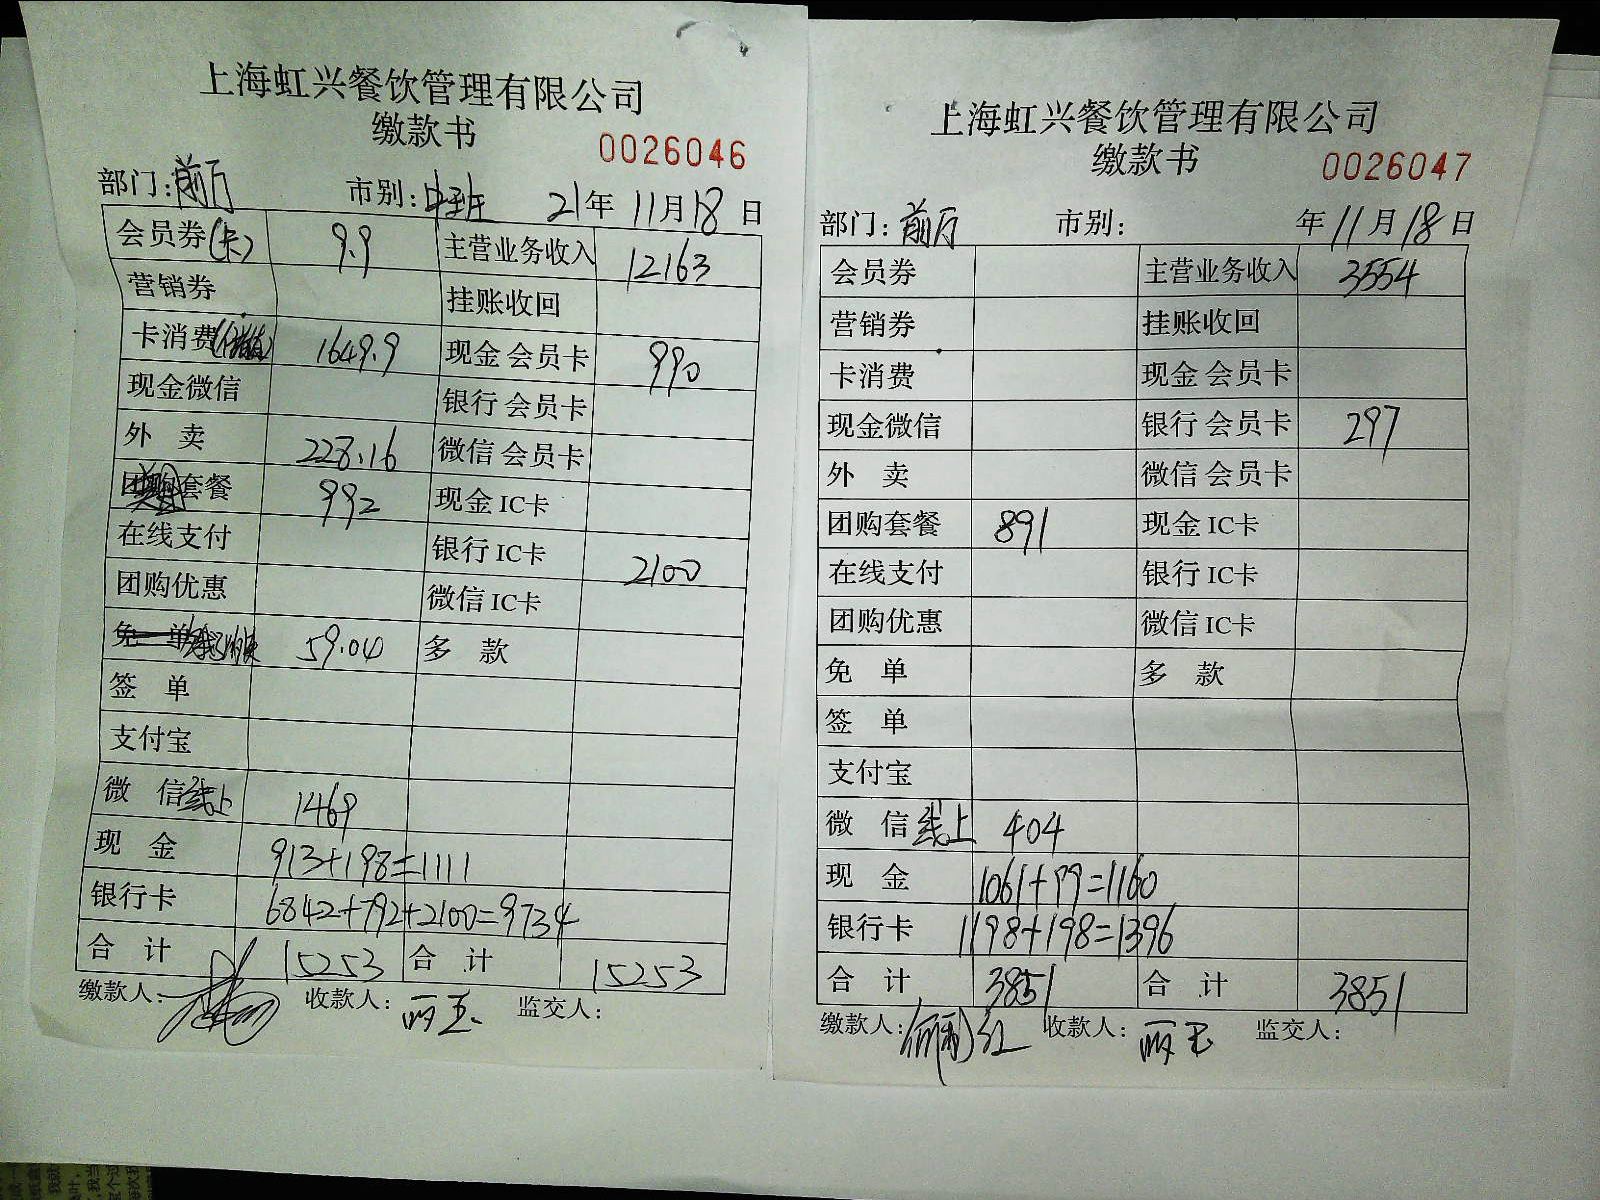 上海虹兴餐饮管理有限公司
缴款书
0026046
部门:前厅 市别:中班 21年11月18日
会员券(卡) 9.9 主营业务收入 12163
营销券 挂账收回
卡消费 1649.9 现金 会员卡 990
现金微信 银行 会员卡
外 卖 228.16 微信 会员卡
套餐 992 现金 IC卡
在线支付 银行 IC卡 2100
团购优惠 微信 IC卡
免 单 59.04 多 款
签 单
支付宝
微 信线上 1469
现 金 913+198=1111
银行卡 6842+792+2100=9734
合 计 15253 合 计 15253
缴款人: 收款人:丽玉 监交人:
上海虹兴餐饮管理有限公司
缴款书
0026047
部门:前厅 市别: 年11月18日
会员券 主营业务收入 3554
营销券 挂账收回
卡消费 现金 会员卡
现金微信 银行 会员卡 297
外 卖 微信 会员卡
团购套餐 891 现金 IC卡
在线支付 银行 IC卡
团购优惠 微信 IC卡
免 单 多 款
签 单
支付宝
微 信线上 404
现 金 1061+99=1160
银行卡 1198+198=1396
合 计 3851 合 计 3851
缴款人: 红 收款人:丽玉 监交人: